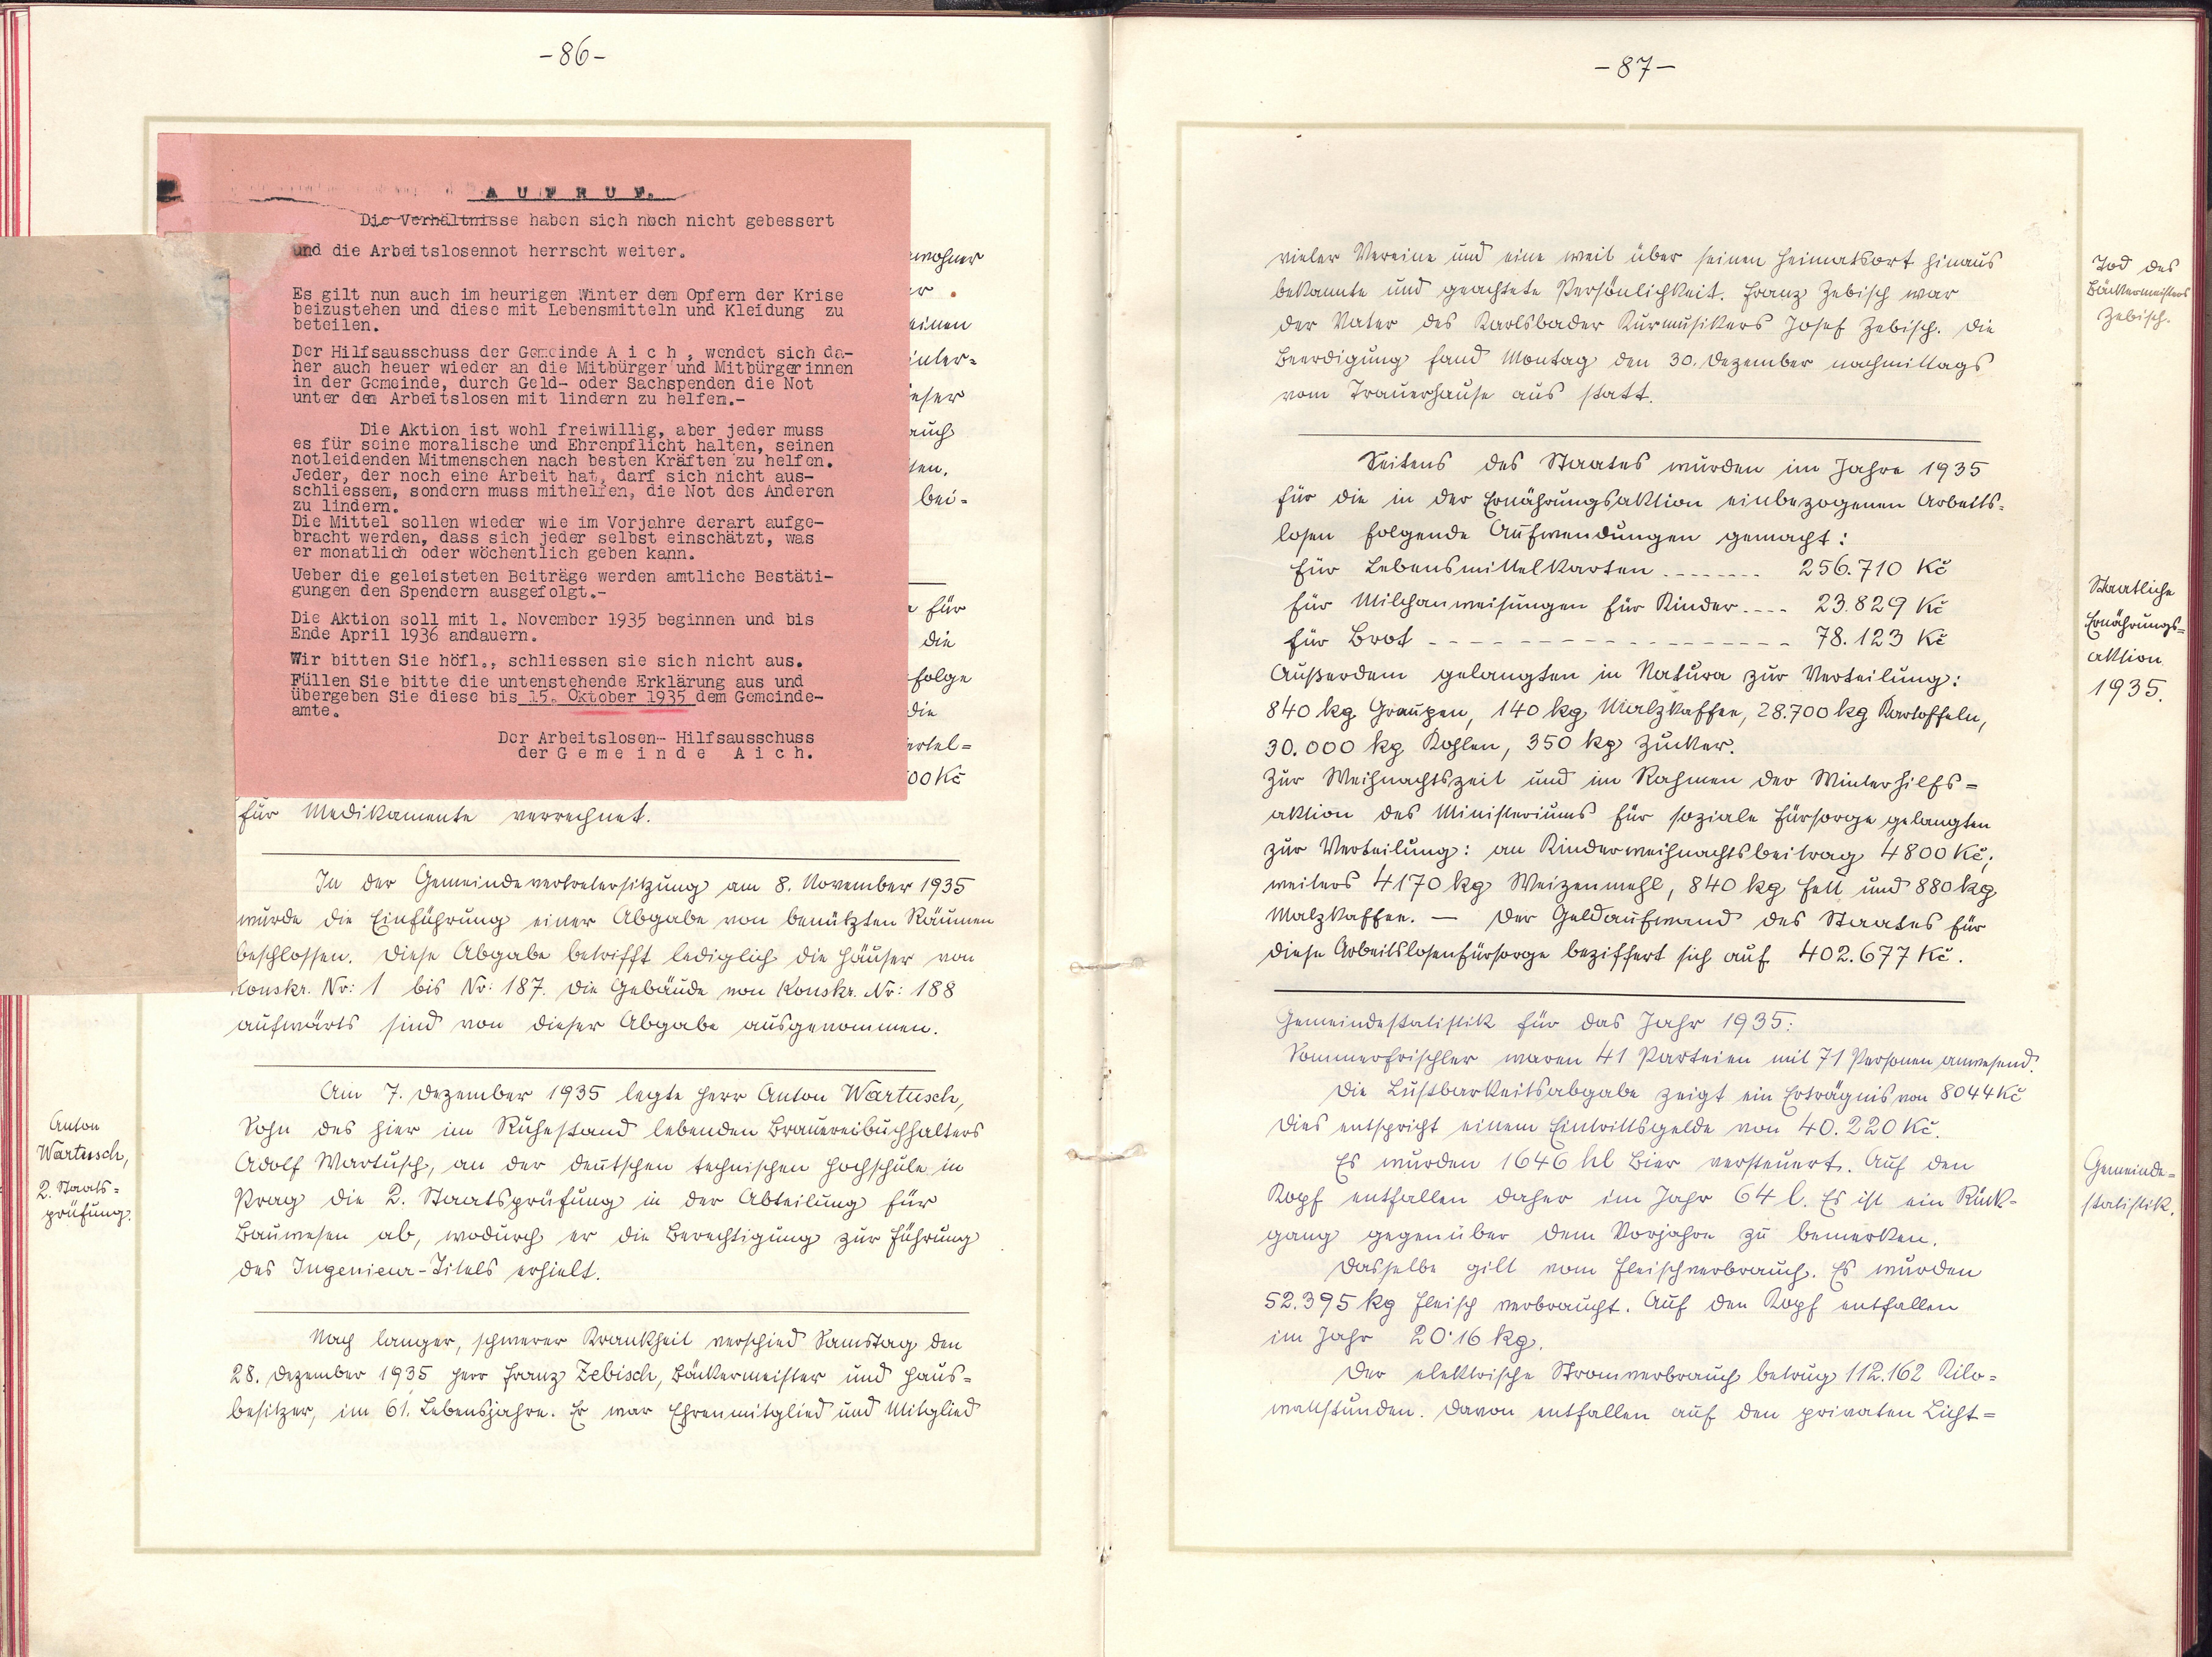 -86-
A U F R U F.
Die Verhältnisse haben sich noch nicht gebessert
und die Arbeitslosennot herrscht weiter.
Es gilt nun auch im heurigen Winter dem Opfern der Krise
beizustehen und diese mit Lebensmitteln und Kleidung zu
beteilen.
Der Hilfsausschuss der Gemeinde A i c h , wendet sich da-
her auch heuer wieder an die Mitbürger und Mitbürgerinnen
in der Gemeinde, durch Geld- oder Sachspenden die Not
unter dem Arbeitslosen mit lindern zu helfen.-
Die Aktion ist wohl freiwillig, aber jeder muss
es für seine moralische und Ehrenpflicht halten, seinen
notleidenden Mitmenschen nach besten Kräften zu helfen.
Jeder, der noch eine Arbeit hat, darf sich nicht aus-
schliessen, sondern muss mithelfen, die Not des Anderen
zu lindern.
Die Mittel sollen wieder wie im Vorjahre derart aufge-
bracht werden, dass sich jeder selbst einschätzt, was
er monatlich oder wöchentlich geben kann.
Ueber die geleisteten Beiträge werden amtliche Bestäti-
gungen den Spendern ausgefolgt.-
Die Aktion soll mit 1. November 1935 beginnen und bis
Ende April 1936 andauern.
Wir bitten Sie höfl., schliessen sie sich nicht aus.
Füllen Sie bitte die untenstehende Erklärung aus und
übergeben Sie diese bis 15. Oktober 1935 dem Gemeinde-
amte.
Der Arbeitslosen- Hilfsausschuss
der G e m e i n d e A i c h.
wohner
r.
einen
inter-
eser
auch
ten.
bei-
für
die
folge
die
ertel-
00 Kč
für Medikamente verrechnet.
In der Gemeindevertretersitzung am 8. November 1935
wurde die Einführung einer Abgabe von benützten Räumen
beschlossen. Diese Abgabe betrifft lediglich die Häuser von
Konskr. Nr: 1 bis Nr: 187. Die Gebäude von Konskr. Nr: 188
aufwärts sind von dieser Abgabe ausgenommen.
Am 7. Dezember 1935 legte Herr Anton Wartusch,
Sohn des hier im Ruhestand lebenden Brauereibuchhalters
Adolf Wartusch, an der deutschen technischen Hochschule in
Prag die 2. Staatsprüfung in der Abteilung für
Bauwesen ab, wodurch er die Berechtigung zur Führung
des Ingenieur-Titels erhielt.
Anton
Wartusch,
2. Staats=
prüfung.
Nach langer, schwerer Krankheit verschied Samstag den
28. Dezember 1935 Herr Franz Zebisch, Bäckermeister und Haus=
besitzer, im 61. Lebensjahre. Er war Ehrenmitglied und Mitglied
-87-
vieler Vereine und eine weit über seinen Heimatsort hinaus
bekannte und geachtete Persönlichkeit. Franz Zebisch war
der Vater des Karlsbader Kurmusikers Josef Zebisch. Die
Beerdigung fand Montag den 30. Dezember nachmittags
vom Trauerhause aus statt.
Tod des
Bäckermeisters
Zebisch.
Seitens des Staates wurden im Jahre 1935
für die in der Ernährungsaktion einbezogenen Arbeits=
losen folgende Aufwendungen gemacht:
für Lebensmittelkarten -------- 256.710 Kč
für Milchanweisungen für Kinder ---- 23.829 Kč
für Brot ------------------ 78.123 Kč
Außerdem gelangten in Natura zur Verteilung:
840 kg Graupen, 140 kg Malzkaffee, 28.700 kg Kartoffeln,
30.000 kg Kohlen, 350 kg Zucker.
Zur Weihnachtszeit und im Rahmen der Winterhilfs=
aktion des Ministeriums für soziale Fürsorge gelangten
zur Verteilung: an Kinderweihnachtsbeitrag 4800 Kč;
weiters 4170 kg Weizenmehl, 840 kg Fett und 880 kg
Malzkaffee. — Der Geldaufwand des Staates für
diese Arbeitslosenfürsorge beziffert sich auf 402.677 Kč.
Staatliche
Ernährungs=
aktion
1935.
Gemeindestatistik für das Jahr 1935:
Sommerfrischler waren 41 Parteien mit 71 Personen anwesend.
Die Lustbarkeitsabgabe zeigt ein Erträgnis von 8044 Kč
Dies entspricht einem Eintrittsgelde von 40.220 Kč.
Es wurden 1646 hl Bier versteuert. Auf den
Kopf entfallen daher im Jahr 64 l. Es ist ein Rück=
gang gegenüber dem Vorjahre zu bemerken.
Dasselbe gilt vom Fleischverbrauch. Es wurden
52.395 kg Fleisch verbraucht. Auf den Kopf entfallen
im Jahr 20·16 kg.
Der elektrische Stromverbrauch betrug 112.162 Kilo=
wattstunden. Davon entfallen auf den privaten Licht=
Gemeinde=
statistik.